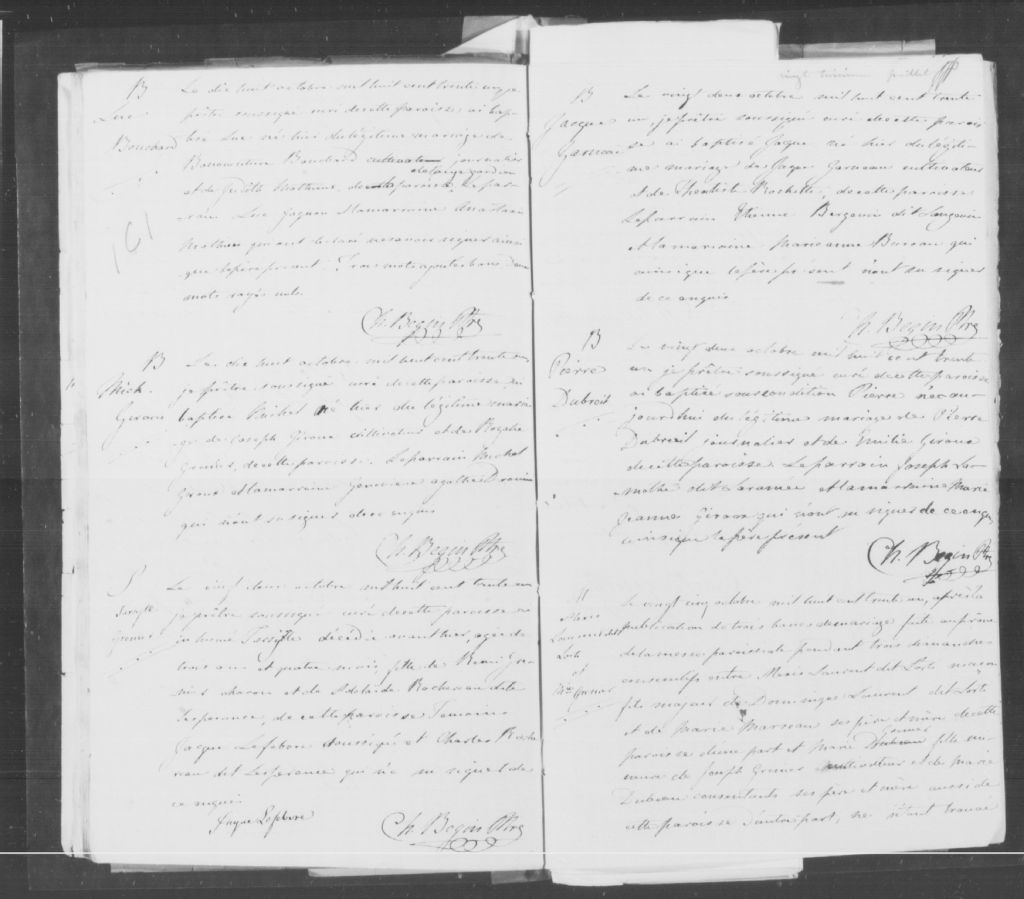 B
Luc
Bouchard
Le dix huit octobre mil huit cent trente un je
prêtre soussigné curé de cette paroisse ai bap-
tisé Luc né hier du légitime mariage de
Bonaventure Bouchard cultivateur journalier
et de Judith de la paroisse Le par-
rain Luc Gagnon et la marraine
qui ont déclaré ne savoir signer ainsi
que le père présent. Trois mots ajoutés bons Deux
mots rayés nuls.
Ch. Begin Ptre
B
Mich.
Giroux
Le dix huit octobre mil huit cent trente un
je prêtre soussigné curé de cette paroisse ai
baptisé Michel né hier du légitime maria-
ge de Joseph Giroux cultivateur et de Rosalie
Grenier, de cette paroisse. Le parrain Michel
Giroux et la marraine Geneviève Agathe Drouin
qui n'ont su signer de ce enquis
Ch. Begin Ptre
S
Grenier
Le vingt deux octobre mil huit cent trente un
je prêtre soussigné curé de cette paroisse ai
inhumé décédée avant hier, agée de
trois ans et quatre mois, fille de Remi Gre-
nier charon et de Adelaide Rocheleau dite
Lesperance, de cette paroisse Temoins
Jacque Lefebvre soussigné et Charles Roche
leau dit Lesperance qui n'a su signer de
ce enquis
Jaque Lefebvre
Ch. Begin Ptre
B
Jacque
Garneau
Le vingt deux octobre mil huit cent trente
un, je prêtre soussigné curé de cette parois
se ai baptisé Jacque né hier du légiti-
me mariage de Jacque Garneau cultivateur
et de Théotiste Rochette, de cette paroisse
Le parrain Etienne Bergevin dit Langevin
et la marraine Marieanne Bureau qui
ainsi que le père présent n'ont su signer
de ce enquis
Ch. Begin Ptre
B
Pierre
Dubreil
Le vingt deux octobre mil huit cent trente
un je prêtre soussigné curé de cette paroisse
ai baptisé sous condition Pierre né au-
jourdhui du légitime mariage de Pierre
Dubreil journalier et de Emilie Giroux
de cette paroisse. Le parrain Joseph La-
mothe dit Laramée et la marraine Marie
Jeanne Giroux qui n'ont su signer de ce enquis
ainsi que le père présent
Ch. Begin Ptre
M
Alexis
Laurent dit
Lorte
et
Mie Grenier
Le vingt cinq octobre mil huit cent trente un, après la
publication de trois bans de mariage faite au prône
de la messe paroissiale pendant trois dimanches
consécutifs entre Alexis Laurent dit Lorte maçon
fils majeur de Dominique Laurent dit Lorte
et de Marie Marceau ses père et mère de cette
Grenier
paroisse d'une part et Marie fille mi-
neure de Joseph Grenier cultivateur et de Marie
Dubeau consentants ses père et mère aussi de
cette paroisse d'autre part, ne s'étant trouvé